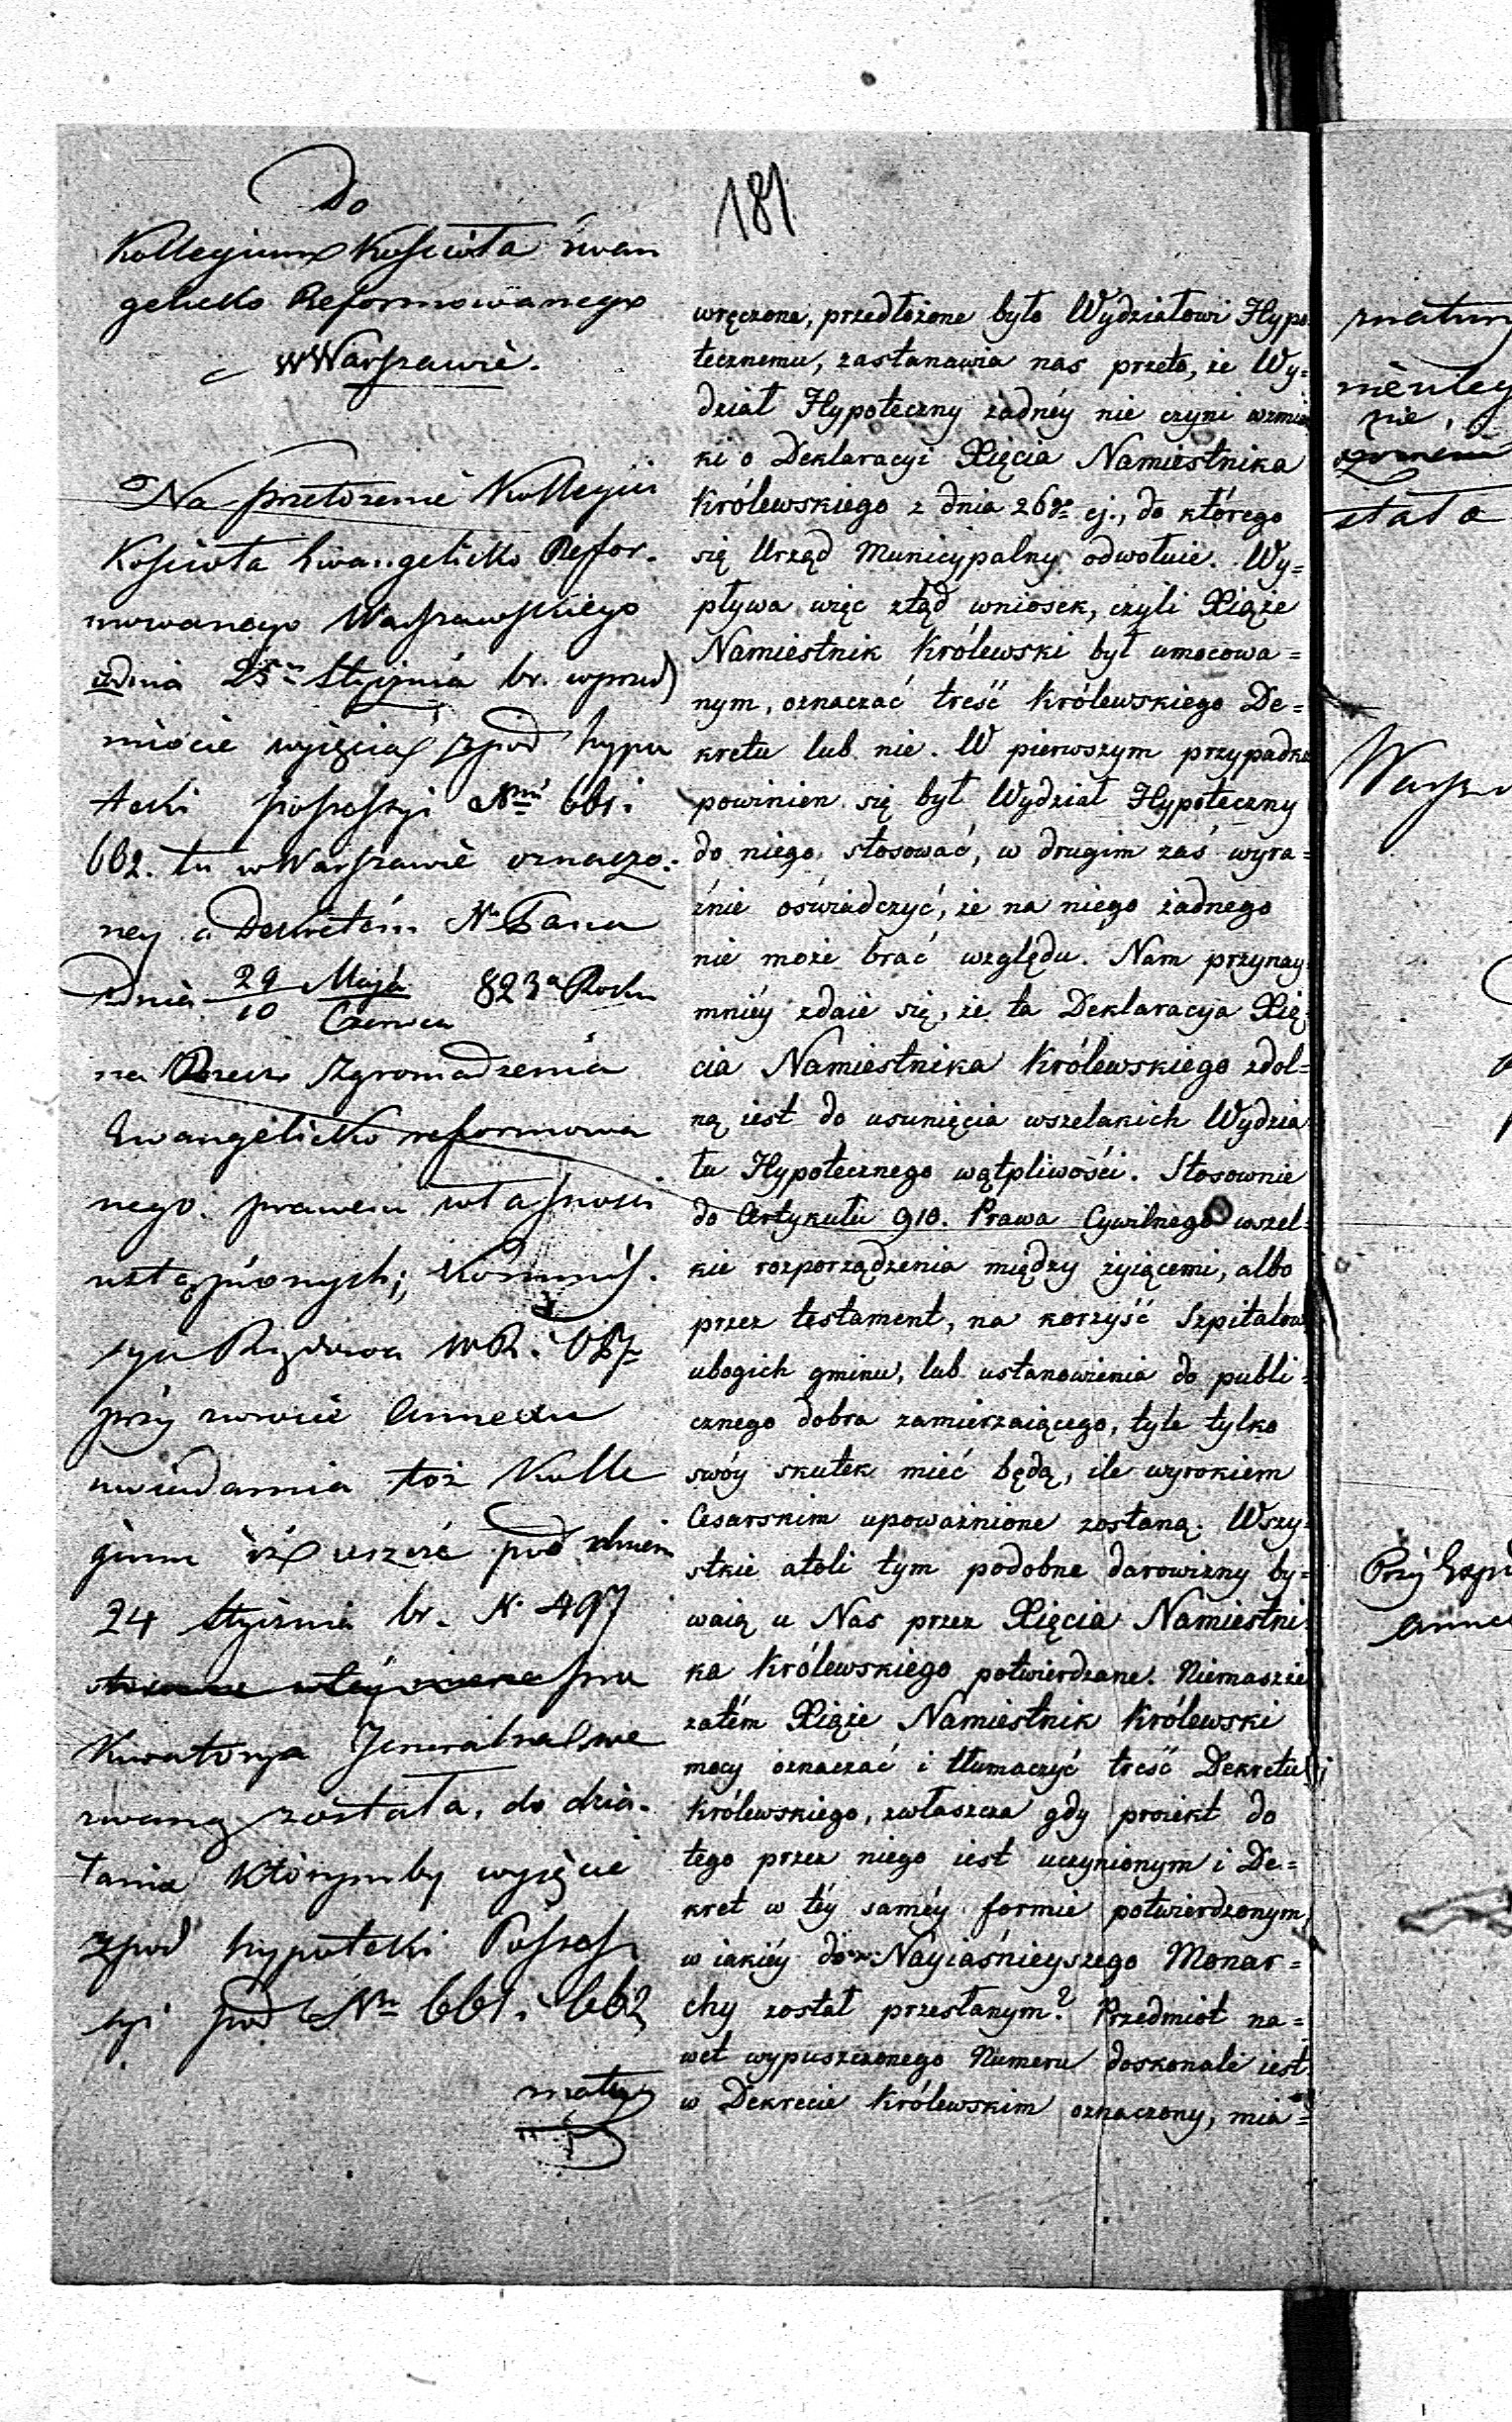 181
Do
Kollegium Kościoła Ewan
gelicko Reformowanego
w Warszawie.
Na przełożenie Kollegii
Kościoła Ewangelicko Refor-
mowanego Warszawskiego
z dnia 25 Stycznia br. wprzed
miocie wyięcia z pod hypo
teki possessyi Nmi 661 i
662. tu w Warszawie oznaczo-
ney a Dekretem N Pana
z dnia 29 Maja / 10 Czerwca 823 Roku
na Rzecz Zgromadzenia
Ewangelicko reformowa
nego prawem własności
ustąpionych; Kommis-
sya Rządowa
przy zwrocie Annexu
uwiadamia toż Kolle
gium iż pod dniem
24 Stycznia br. N. 497
Kuratorya Jeneralna we
zwaną została, do dzia-
łania którymby wyięcie
z pod hypoteki Possess
syi pod Nr 661 i 662
wręczone, przedłożone było Wydziałowi Hypo
tecznemu, zastanawia nas przeto, że Wy=
dział Hypoteczny żadnéy nie czyni wzmian
ki o Deklaracyi Xięcia Namiestnika
Królewskiego z dnia 26go ej., do którego
się Urząd Municypalny odwołuie. Wy=
pływa więc ztąd wniosek, czyli Xiąże
Namiestnik Królewski był umocowa=
nym, oznaczać treść Królewskiego De=
kretu lub nie. W pierwszym przypadku
powinien się był Wydział Hypoteczny
do niego stosować, w drugim zaś wyra=
źnie oświadczyć, że na niego żadnego
nie może brać względu. Nam przynay
mniéy zdaie się, że ta Deklaracya Xię=
cia Namiestnika Królewskiego zdol=
ną iest do usunięcia wszelakich Wydzia
łu Hypotecznego wątpliwości. Stosownie
do Artykułu 910. Prawa Cywilnego wszel=
kie rozporządzenia między żyiącemi, albo
przez testament, na korzyść Szpitalow
ubogich gminu, lub ustanowienia do publi=
cznego dobra zamierzaiącego, tyle tylko
swóy skutek mieć będą, ile wyrokiem
Cesarskim upoważnione zostaną. Wszy=
stkie atoli tym podobne darowizny by=
waią u Nas przez Xięcia Namiestni=
ka Królewskiego potwierdzane. Niemaszże
zatém Xiąże Namiestnik Królewski
mocy oznaczać i tłumaczyć treść Dekretu
Królewskiego, zwłaszcza gdy proiekt do
tego przez niego iest uczynionym i De=
kret w téy saméy formie potwierdzonym,
w iakiéy do Nayiaśnieyszego Monar=
chy został przesłanym? Przedmiot na=
wet wypuszczonego Numeru doskonale iest
w Dekrecie Królewskim oznaczony, mia=